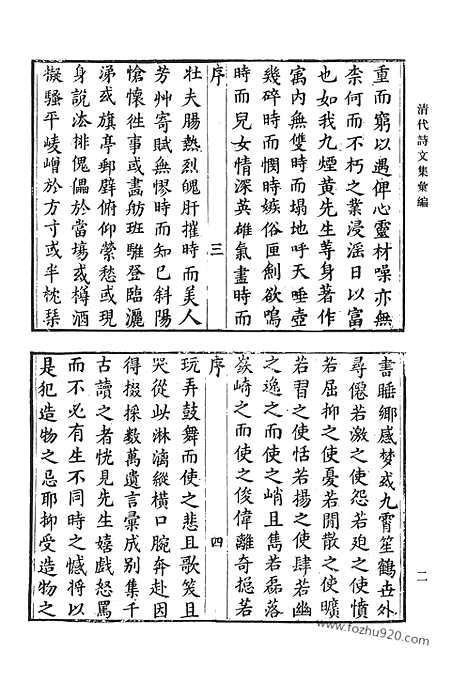 清代詩文集彙編
重而窮以遇俾心靈材噪亦無
柰何而不朽之業浸淫日以富
也如我九煙黃先生等身著作
寓內無雙時而塌地呼天唾壺
幾碎時而憫時嫉俗匣劍欲鳴
時而兒女情深英雄氣盡時而
序
三
壯夫腸熱烈魄肝摧時而美人
芳艸寄賦無憀時而知已斜陽
愴懷徃事或畵舫班騅登臨灑
涕或旗亭郵壁俯仰縈愁或現
身說法排傀儡於當場或樽酒
擬騷平崚嶒於方寸或半枕琹
書睡鄉感梦或九霄笙鶴世外
尋僊若激之使怨若廹之使憤
若屈抑之使憂若閒散之使曠
若習之使恬若揚之使肆若幽
之逸之而使之峭且雋若磊落
嶔崎之而使之俊偉離奇挹若
序
四
玩弄鼓舞而使之悲且歌笑且
哭從此淋漓縱橫口腕奔赴因
得掇採數萬遺言彙成别集千
古讀之者恍見先生嬉戲怒罵
而不必有生不同時之憾將以
是犯造物之忌耶抑受造物之
二
www.fozhu920.com